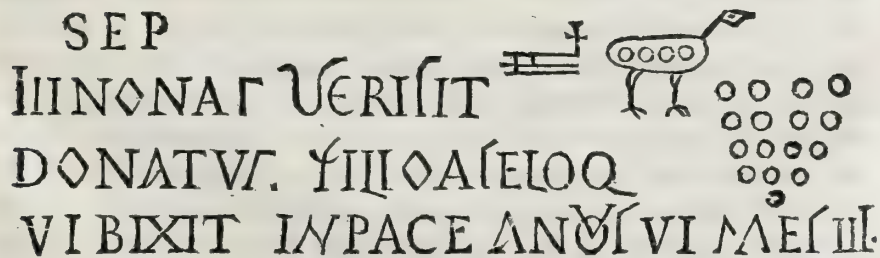 SEP
IIINONAS VERISIT
DONATVS. FILIOASELOQ
VIBIXIT INPACE ANȣS VI MES III.